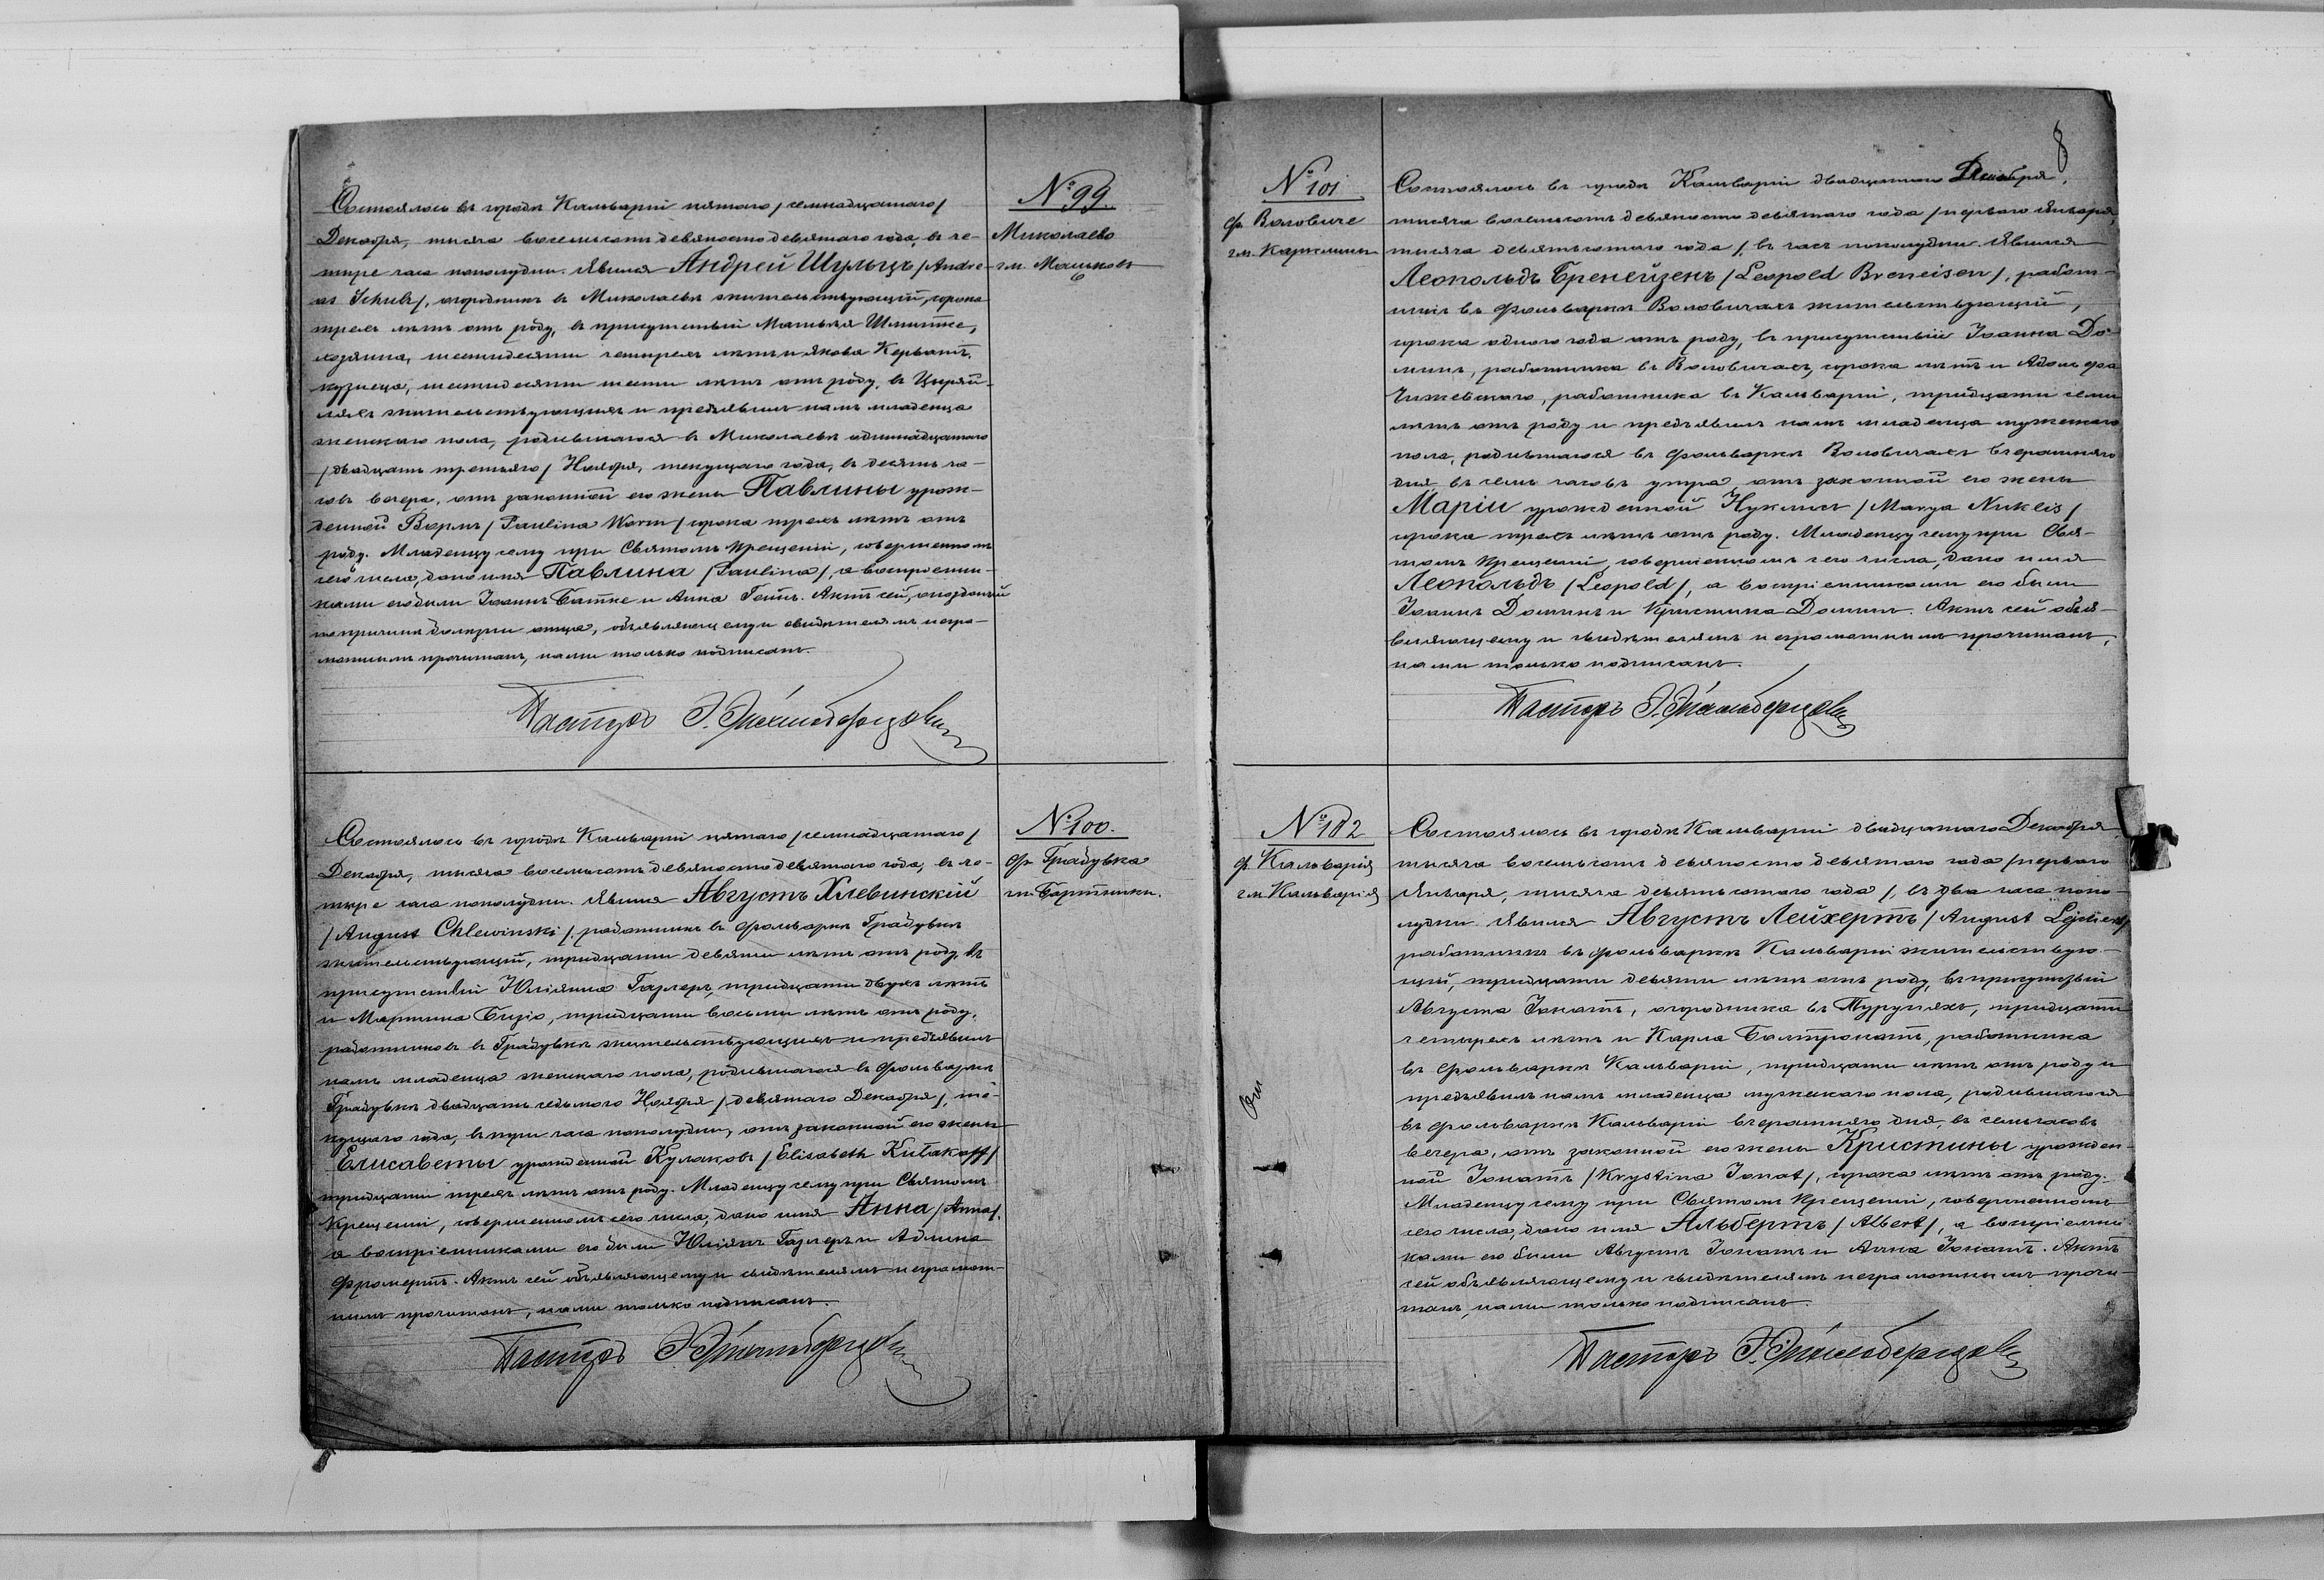 Состоялось въ городѣ Кальваріи пятаго /семнадцатаго/
Декабря, тысяча восемьсотъ девяносто девятаго года, въ че-
тыре часа пополудни. Явился Андрей Шульцъ /Andre-
as Schulz/, огородникъ въ Миколаевѣ жительствующій, сорока
трехъ лѣтъ отъ роду, въ присутствіи Матвѣя
хозяина, шестидесяти четырехъ лѣтъ и Якова
кузнеца, шестидесяти шести лѣтъ отъ роду, въ
жительствующихъ и предъявилъ намъ младенца
женскаго пола, родившагося въ Миколаевѣ одиннадцатаго
/двадцать третьяго/ Ноября, текущаго года, въ десять ча-
совъ вечера, отъ законной его жены Павлины урож-
денной Вормъ /Paulina Worm/ сорока трехъ лѣтъ отъ
роду. Младенцу сему при Святомъ Крещеніи, совершенномъ
сего числа, дано имя Павлина /Paulina/, а воспріемни-
ками его были Іоаннъ Батке и Анна Актъ сей, опозданный
по причинѣ болѣзни отца, объявляющему и свидѣтелямъ негра-
мотнымъ прочитанъ, нами только подписанъ.
Пасторъ
№ 99.
Миколаево
гм.
Состоялось въ городѣ Кальваріи пятаго /семнадцатаго/
Декабря, тысяча восемьсотъ девяносто девятаго года, въ че-
тыре часа пополудни. Явился Августъ Хлевинскій
/August Chlewinski/, работникъ въ фольваркѣ Градувкѣ
жительствующій, тридцати девяти лѣтъ отъ роду, въ
присутствіи Юліяна Газлеръ, тридцати двухъ лѣтъ
и Мартина тридцати восьми лѣтъ отъ роду,
работниковъ въ Градувкѣ жительствующихъ и предъявилъ
намъ младенца женскаго пола, родившагося въ фольваркѣ
Градувкѣ двадцать седьмого Ноября /девятаго Декабря/, те-
кущаго года, въ три часа пополудни, отъ законной его жены
Елисаветы урожденной Кулаковъ /Elisabeth Kułakoff/
тридцати трехъ лѣтъ отъ роду. Младенцу сему при Святомъ
Крещеніи, совершенномъ сего числа, дано имя Анна /Anna/,
а воспріемниками его были Юліянъ Газлеръ и
Фромертъ. Актъ сей объявляющему и свидѣтелямъ неграмот-
нымъ прочитанъ, нами только подписанъ.
Пасторъ
№ 100.
ф. Градувка
гм. Бартники.
8
№ 101
ф. Воловиче
гм.
Состоялось въ городѣ Кальваріи двадцатаго Декабря,
тысяча восемьсотъ девяносто девятаго года /перваго Января,
тысяча девятьсотаго года/, въ часъ пополудни. Явился
Леопольдъ Бренейзенъ /Leopold Breneisen/, работ-
никъ въ фольваркѣ Воловичахъ жительствующій,
сорока одного года отъ роду, въ присутствіи Іоанна До-
минъ, работника въ Воловичахъ, сорока лѣтъ и Адольфа
Чижевскаго, работника въ Кальваріи, тридцати семи
лѣтъ отъ роду и предъявилъ намъ младенца мужескаго
пола, родившагося въ фольваркѣ Воловичахъ вчерашняго
дня въ семь часовъ утра, отъ законной его жены
Маріи урожденной Нуклисъ /Marya Nuklis/
сорока трехъ лѣтъ отъ роду. Младенцу сему при Свя-
томъ Крещеніи, совершенномъ сего числа, дано имя
Леопольдъ /Leopold/, а воспріемниками его были
Іоаннъ Доминъ и Кристина Доминъ. Актъ сей объя-
вляющему и свидѣтелямъ неграмотнымъ прочитанъ,
нами только подписанъ.
Пасторъ
№ 102
ф. Кальварія
гм. Кальварія
Состоялось въ городѣ Кальваріи двадцатаго Декабря,
тысяча восемьсотъ девяносто девятаго года /перваго
Января, тысяча девятьсотаго года/, въ два часа попо-
лудни. Явился Августъ Лейхертъ /August Lejchert/
работникъ въ фольваркѣ Кальваріи жительствую-
щій, тридцати девяти лѣтъ отъ роду, въ присутствіи
Августа Іонатъ, огородника въ Турупяхъ, тридцати
четырехъ лѣтъ и Карла Балтрокатъ, работника
въ фольваркѣ Кальваріи, тридцати лѣтъ отъ роду и
предъявилъ намъ младенца мужескаго пола, родившагося
въ фольваркѣ Кальваріи вчерашняго дня, въ семь часовъ
вечера, отъ законной его жены Кристины урожден-
ной Іонатъ /Krystina Jonat/, сорока лѣтъ отъ роду.
Младенцу сему при Святомъ Крещеніи, совершенномъ
сего числа, дано имя Альбертъ /Albert/, а воспріемни-
ками его были Августъ Іонатъ и Анна Іонатъ. Актъ
сей объявляющему и свидѣтелямъ неграмотнымъ прочи-
танъ, нами только подписанъ.
Пасторъ